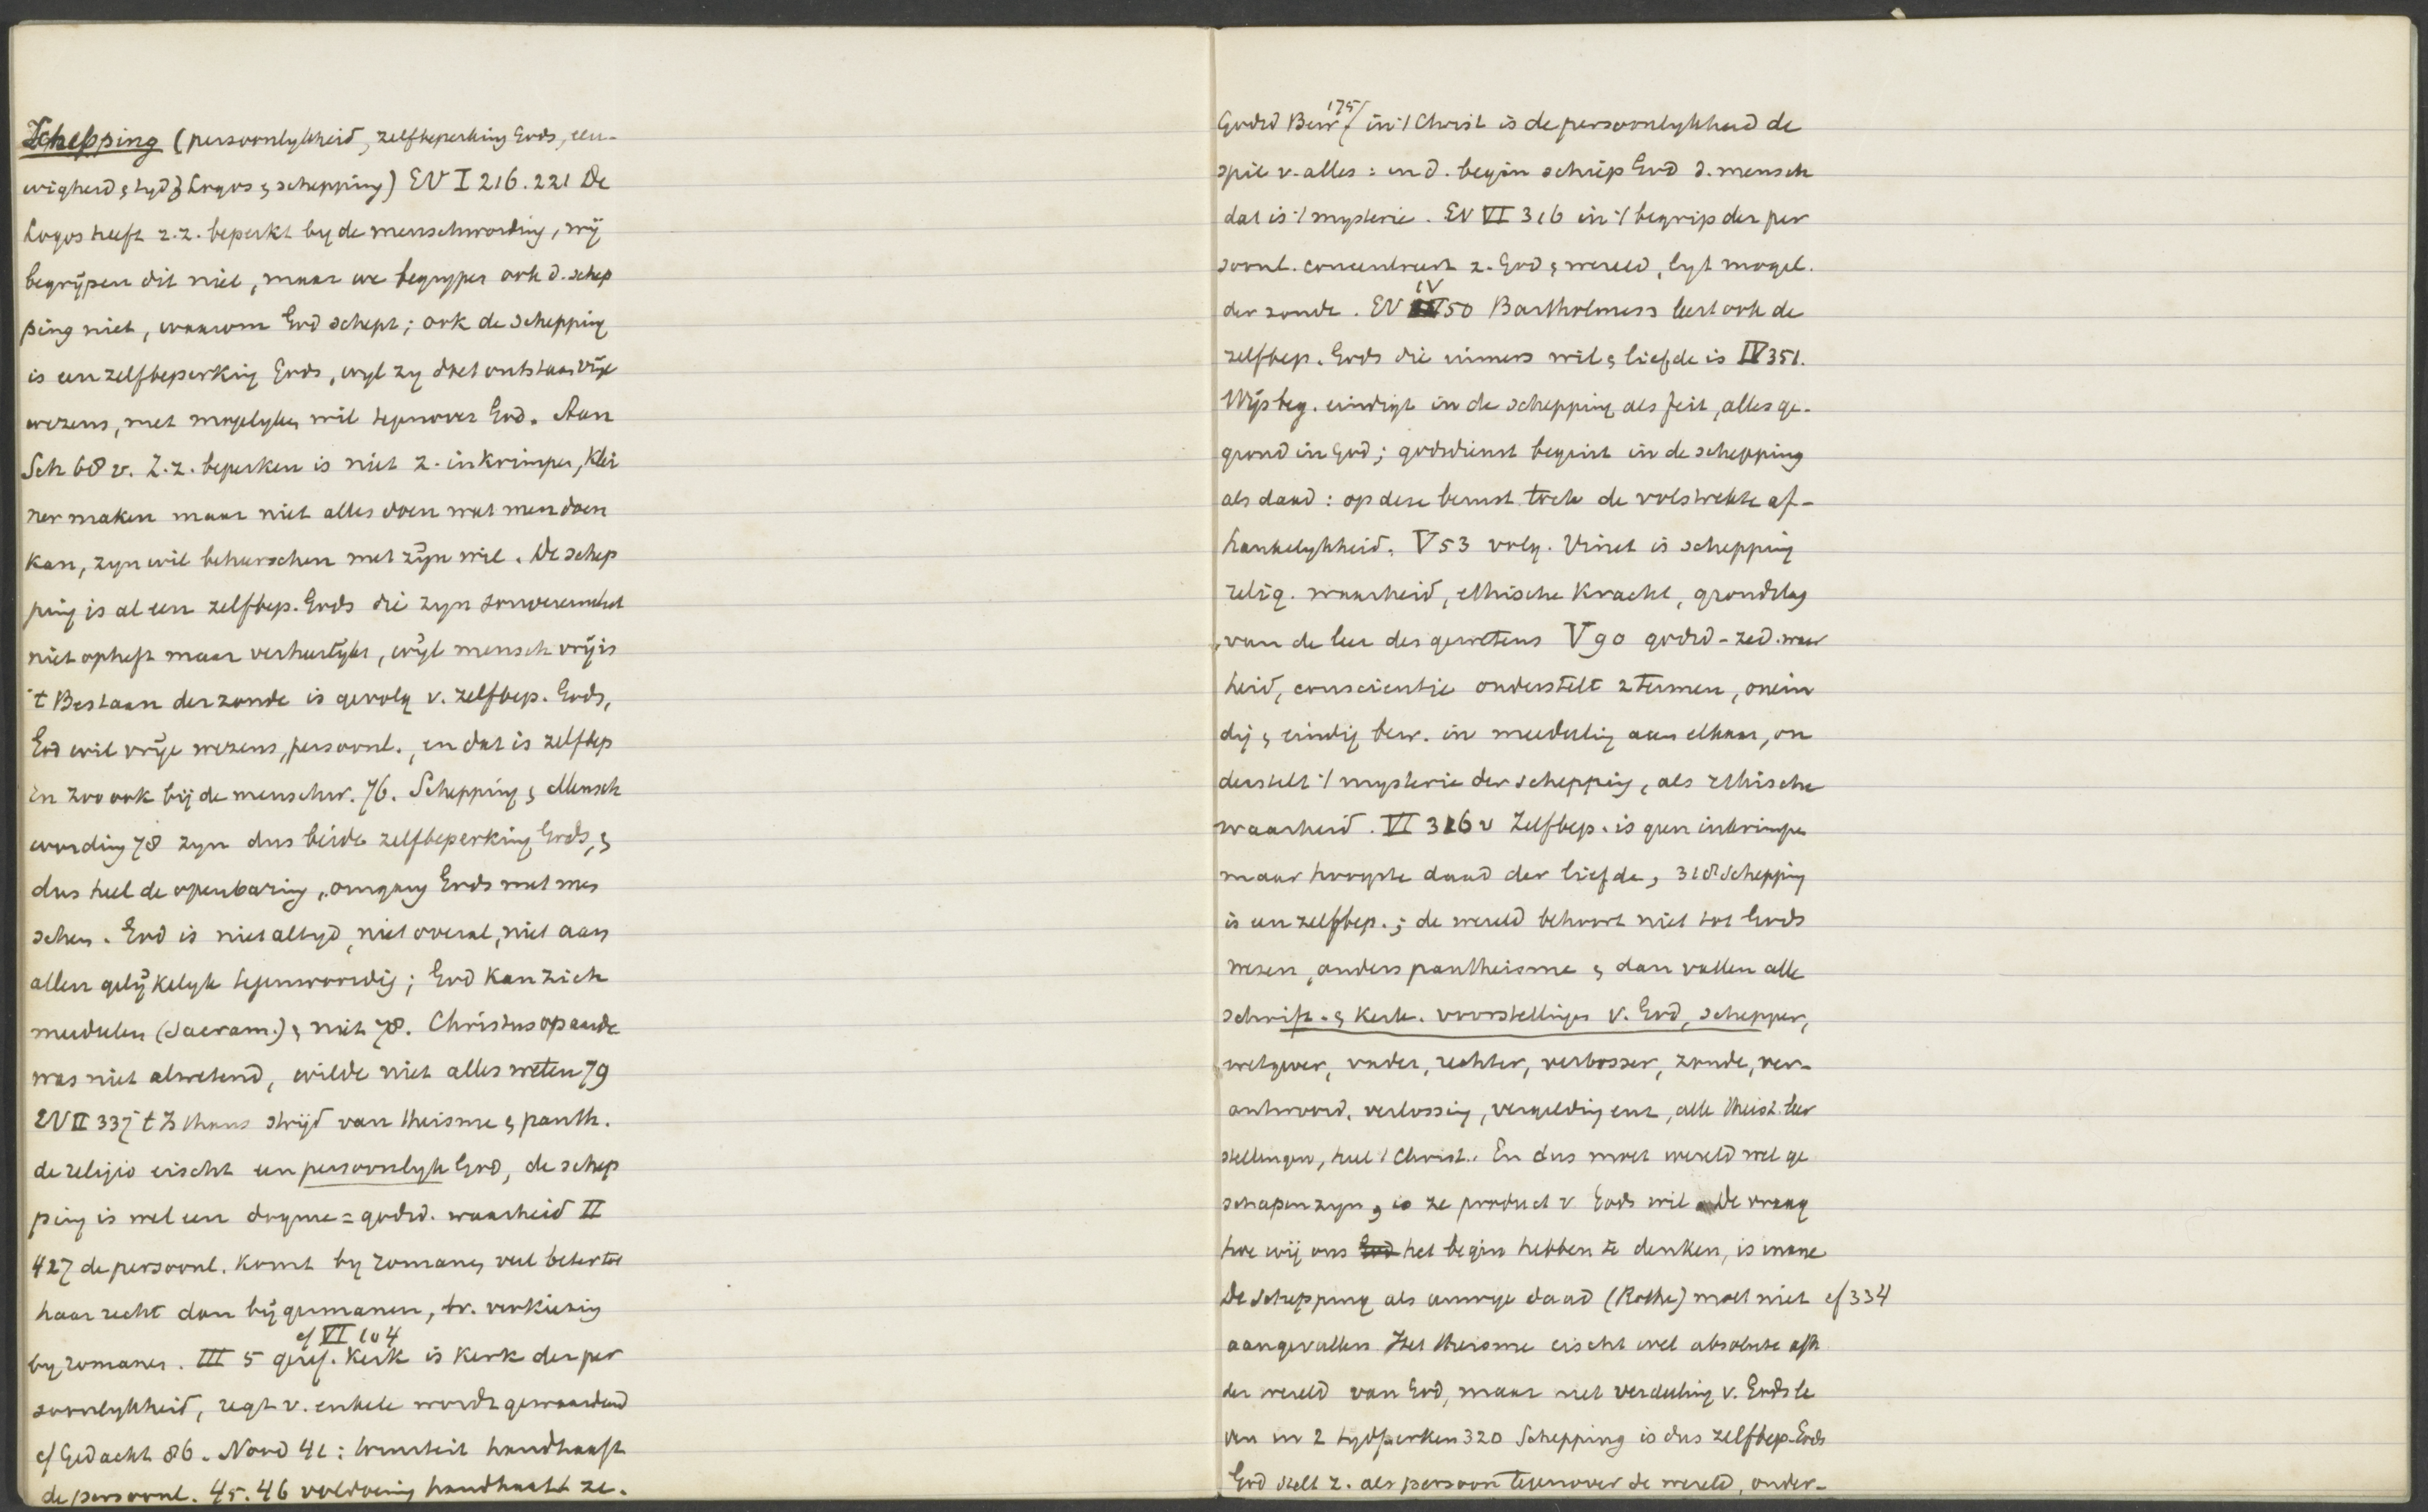 Schepping (persoonlykheid, zelfbeperking Gods, eeu-
wigheid & tyd, Logos & schepping) EV I 216. 221 De
Logos heeft z.z. beperkt by de menschwording, wij
begrijpen dit niet, maar we begrypen ook d. schep
ping niet, waarom God schept; ook de schepping
is een zelfbeperking Gods, wyl zy doet ontstaan vrije
wezens, met mogelyken wil tegenover God. Aan
Sch 68 v. Z.z. beperken is niet z. inkrimpen, klei
ner maken maar niet alles doen wat men doen
kan, zyn wil beheerschen met zijn wil. De schep
ping is al een zelfbep. Gods die zyn souvereiniteit
niet opheft maar verheerlykt, wijl mensch vrij is
't Bestaan der zonde is gevolg v. zelfbep. Gods,
God wil vrije wezens, persoonl., en dat is zelfbep
en zoo ook bij de menschw. 76. Schepping & Mensch
wording 78 zyn dus beide zelfbeperking Gods, &
dus heel de openbaring, omgang Gods met men
schen. God is niet altyd, niet overal, niet aan
allen gelijkelyk tegenwoordig; God kan zich
meedeelen (Sacram.) & niet 78. Christus op aarde
was niet alwetend, wilde niet alles weten 79
EV II 337 't Is thans strijd van theisme & panth.
de religie eischt een persoonlyk God, de schep
ping is wel een dogme = godsd. waarheid II
427 de persoonl. komt by Romanen veel beter tot
haar recht dan bij Germanen, tr. verkiezing
by Romanen. III 5 geref. kerk is kerk der per
cf VI 104
soonlykheid, regt v. enkele wordt gewaardeerd
cf Gedacht 86. Nood 41: bewustheid handhaaft
de persoonl. 45. 46 voldoening handhaaft ze.
Godsd Bew 175/ in 't Christ is de persoonlykheid de
spil v. alles: in d. begin schiep God d. mensch
dat is 't mysterie. EV VI 316 in 't begrip der per
soonl. concentreert z. God & wereld, ligt mogel.
der zonde. EV IV 50 Bartholmess leert ook de
zelfbep. Gods die immers wil & liefde is IV 351.
Wijsbeg. eindigt in de schepping als feit, alles ge-
grond in God; godsdienst begint in de schepping
als daad: op deze berust toch de volstrekte af-
hankelykheid. V 53 volg. Vinet is schepping
relig. waarheid, ethische kracht, grondslag
van de leer des gewetens V 90 godsd-zed. waar
heid, conscientie onderstelt 2 termen, onein
dig & eindig bew. in meedeeling aan elkaar, on
derstelt 't mysterie der schepping, als ethische
waarheid. VI 316 v Zelfbep. is geen inkrimpen
maar hoogste daad der liefde, 318 Schepping
is een zelfbep.; de wereld behoort niet tot Gods
wezen, anders pantheisme & dan vallen alle
schrift- & kerk. voorstellingen v. God, schepper,
wetgever, vader, rechter, verlosser, zonde, ver-
antwoord. verlossing, vergelding enz, alle theist. leer
stellingen, heel 't Christ. En dus moet wereld wel ge
schapen zyn, is ze product v Gods wil. De vraag
hoe wij ons God het begin hebben te denken, is inane
De schepping als eeuwige daad (Rothe) moet niet cf 334
aangevallen Het theisme eischt wel absolute afh
der wereld van God, maar niet verdeeling v. Gods le
ven in 2 tydperken 320 Schepping is dus zelfbep. Gods
God stelt z. als persoon tegenover de wereld, onder-